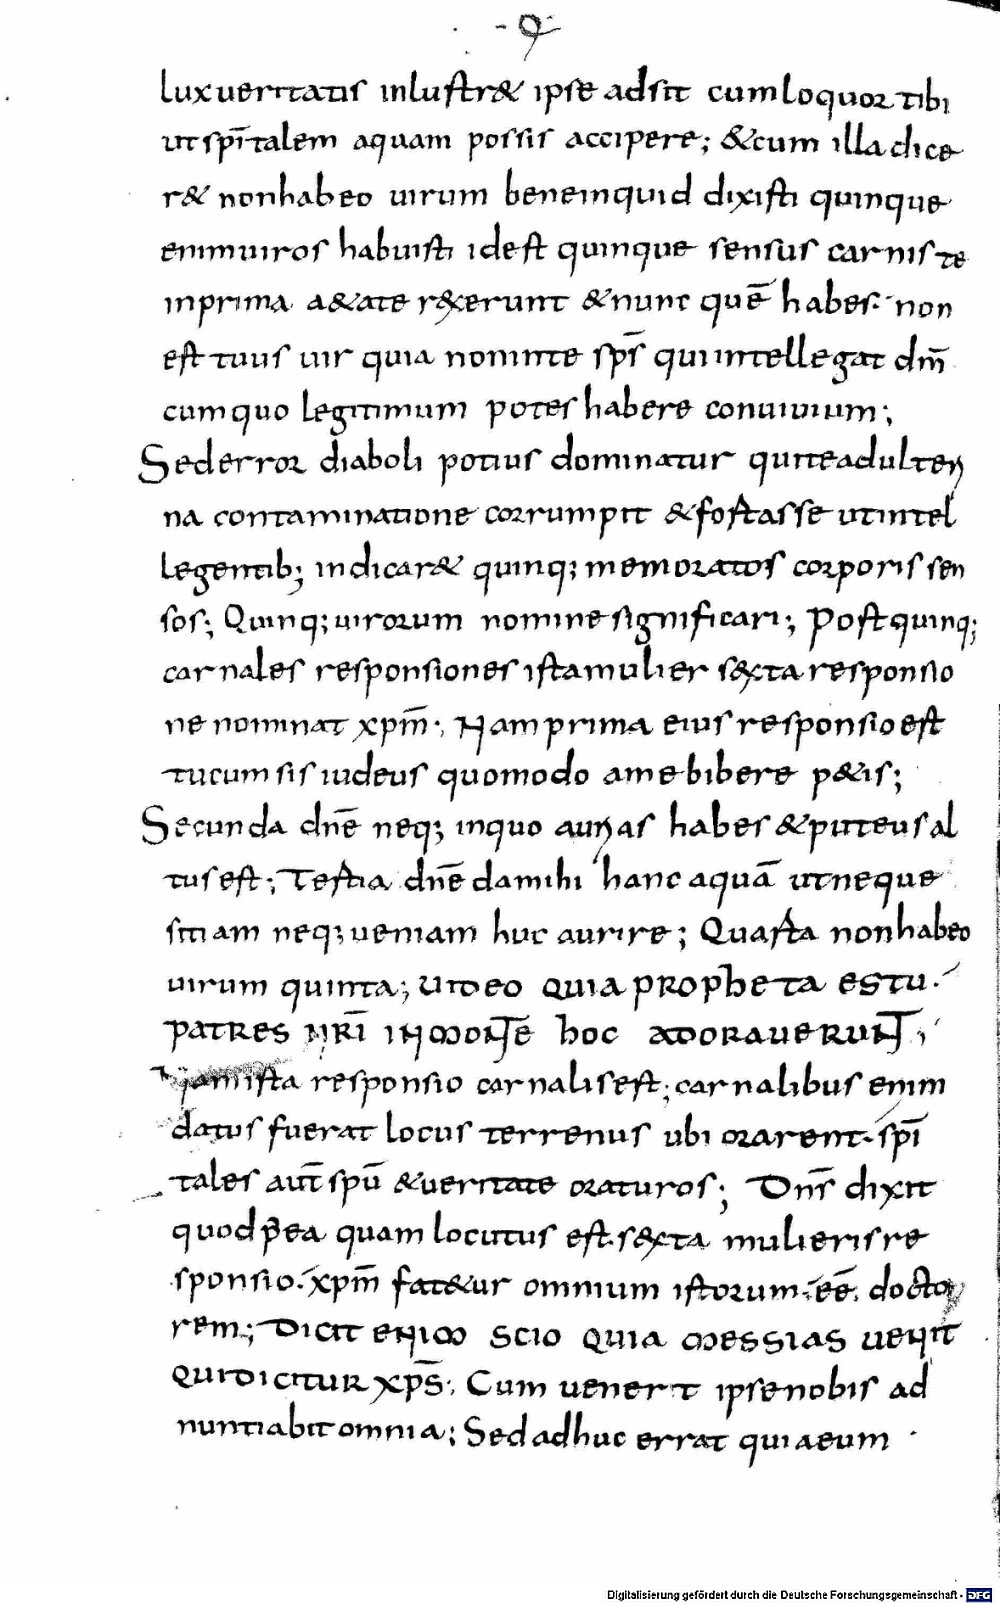 lux ueritatis inlustr& ipse adsit cum loquor tibi
ut sp̄italem aquam possis accipere; &cum illa dice
r& non habeo uirum bene inquid dixisti quinque
enim uiros habuisti id est quinque sensus carnis te
in prima a&ate r&xerunt &nunc quē habes· non
est tuus uir quia non inte sp̄s qui intellegat dm̄
cum quo legitimum potes habere conuiuium;
Sed error diaboli potius dominatur qui te adulteri
na contaminatione corrumpit &fostasse ut intel
legentib; indicar& quinq; memoratos corporis sen
sos; Quinq; uirorum nomine significari; Post quinq;
carnales responsiones ista mulier s&xta responsio
ne nominat xpm̄·, Nam prima eius responsio est
tu cum sis iudeus quomodo a me bibere p&is;
Secunda dn̄e neq; in quo aurias habes &puteus al
tus est; Tertia dn̄e da mihi hanc aquā ut neque
sitiam neq; ueniam huc aurire; Quarta non habeo
uirum quinta; uideo quia propheta es tu·
patres nr̄i in monte hoc adorauerunt;
Nam ista responsio carnalis est; carnalibus enim
datus fuerat locus terrenus ubi orarent· sp̄i
tales aut̄ spū &ueritate oraturos; Dn̄s dixit
quod p̄ea quam locutus est· s&xta mulieris re
sponsio· xpm̄ fat&ur omnium istorum· eē· docto
rem; Dicit enim scio quia messias uenit
qui dicitur xp̄s·, Cum uenerit ipse nobis ad
nuntiabit omnia; Sed adhuc errat quia eum
Digitalisierung gefördert durch die Deutsche Forschungsgemeinschaft - DFG